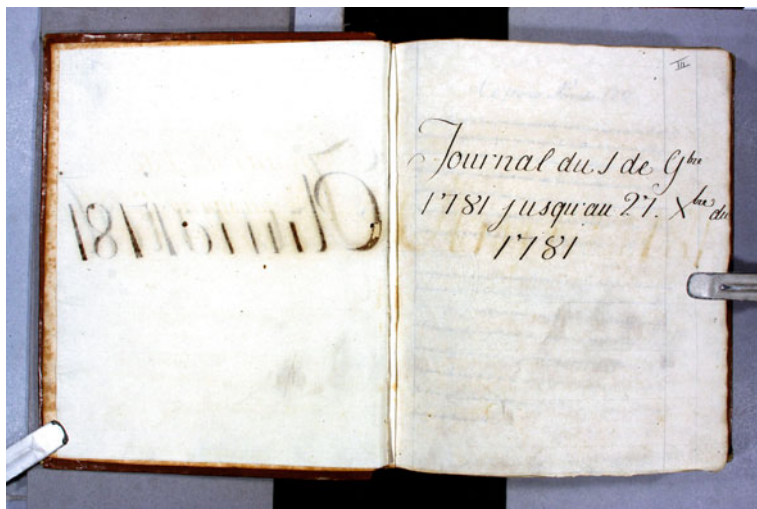 III
Journal du 1 de 9bre
1781 jusqu'au 27. Xbre du
1781